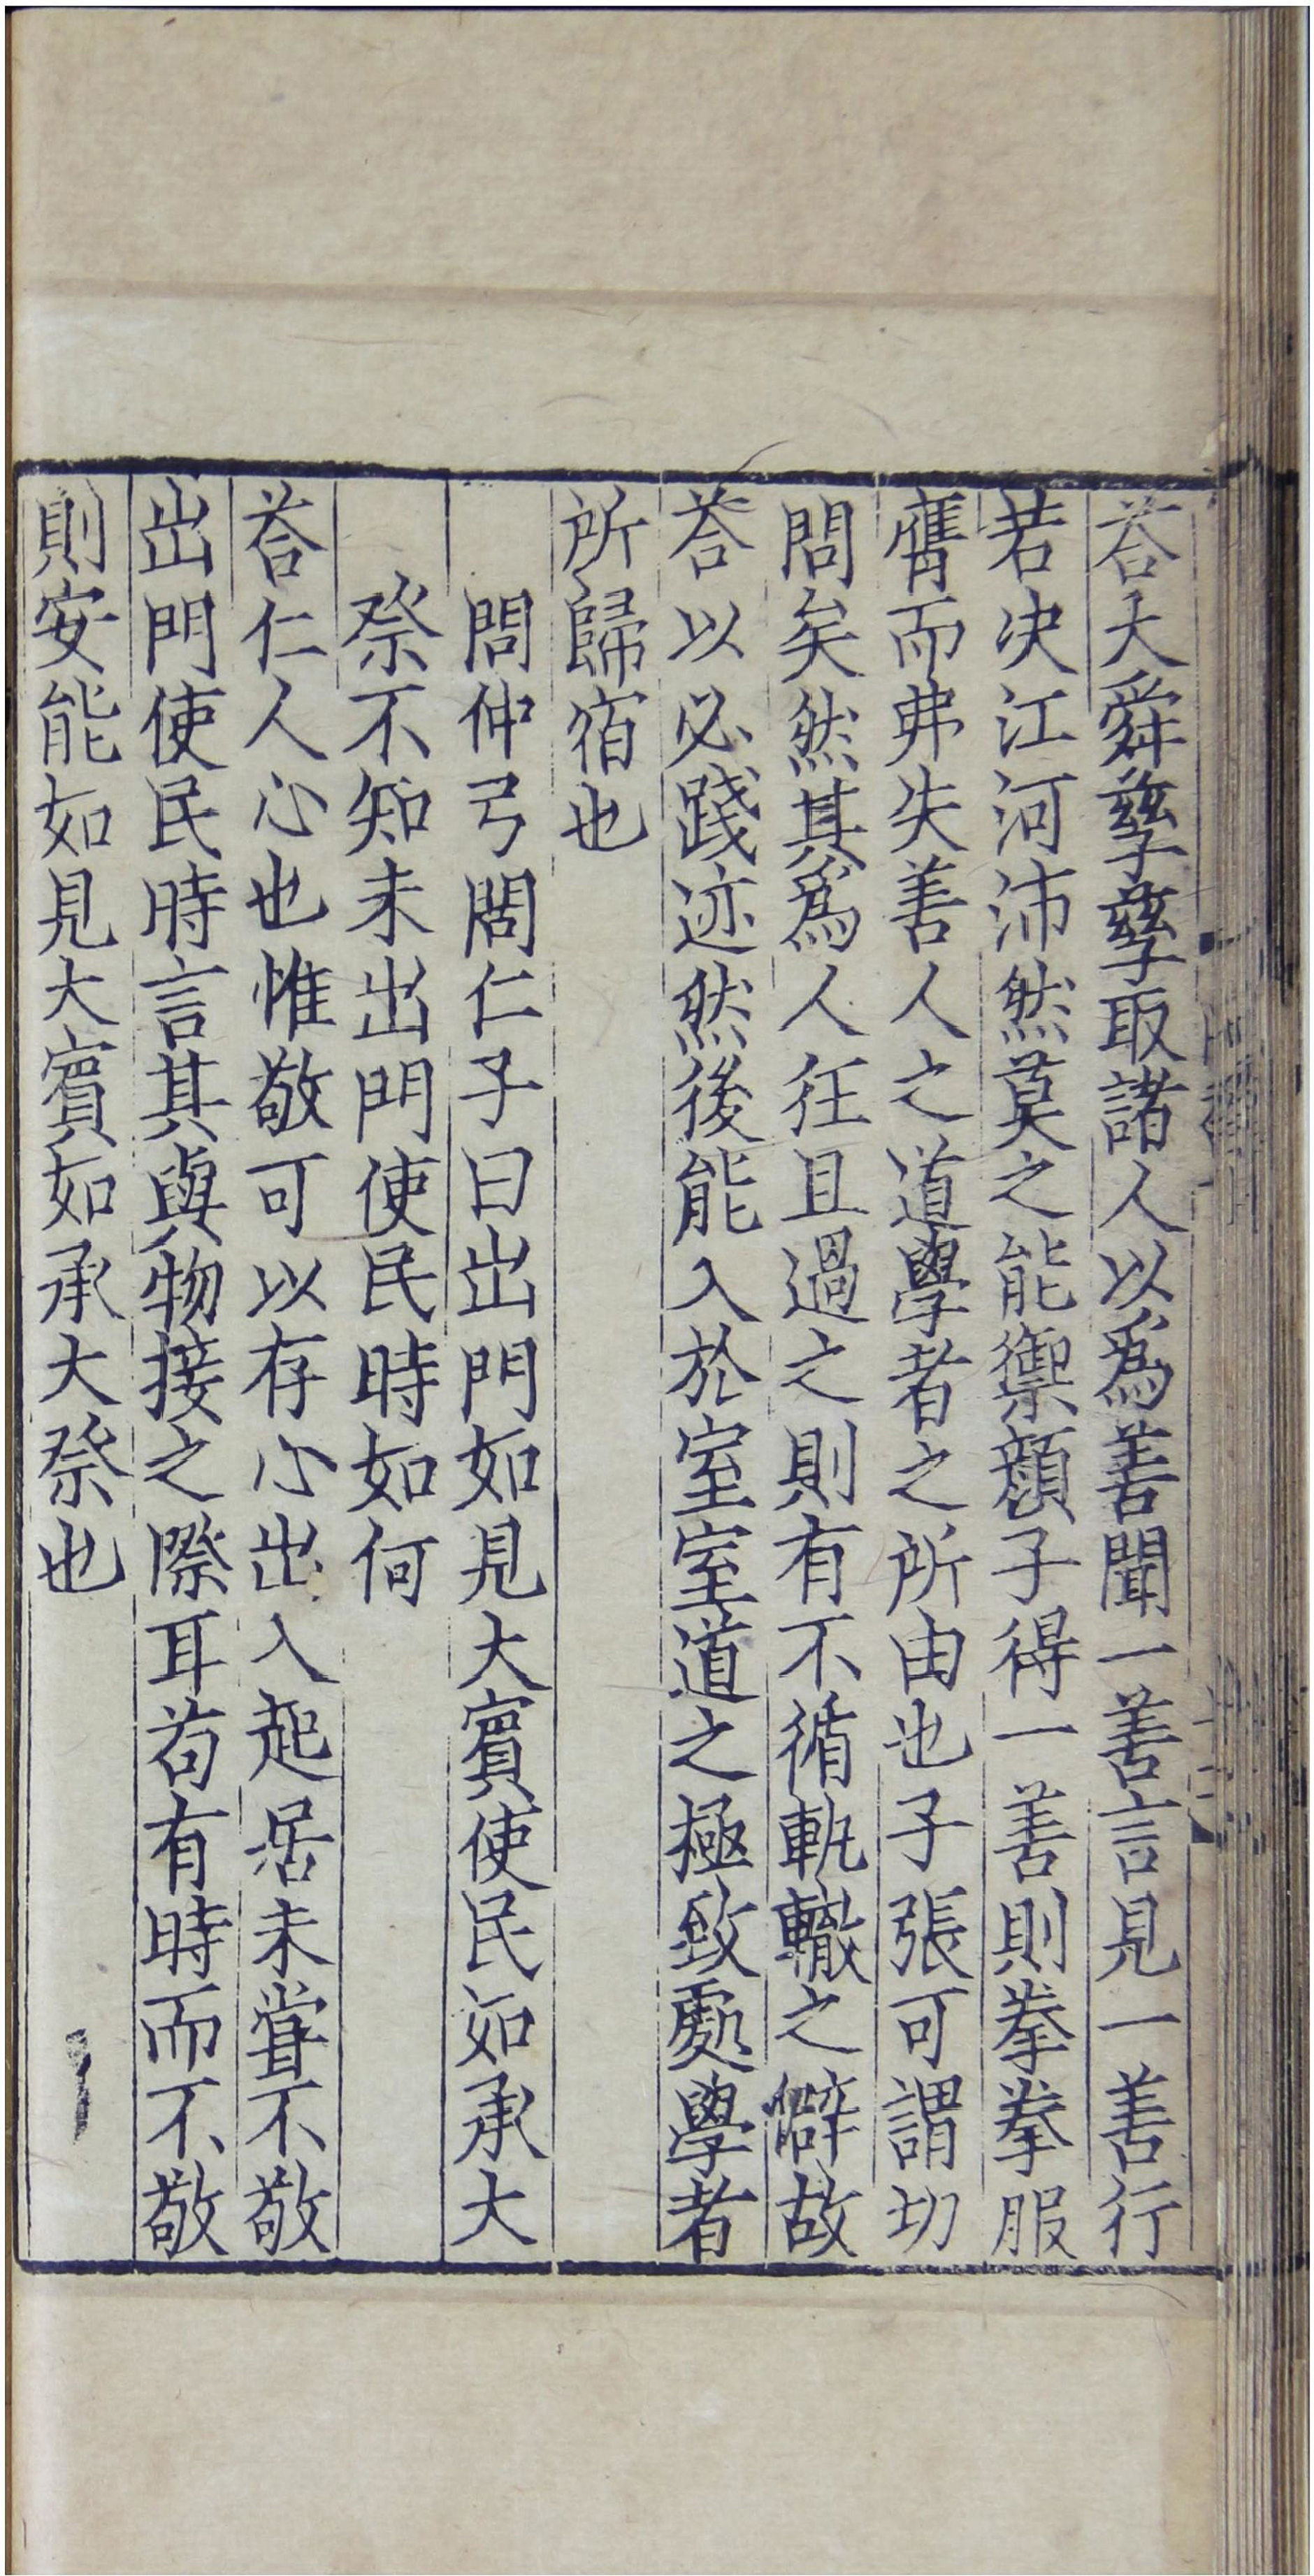 荅大舜孳孳取諸人以爲善聞一善言見一善行
若决江河沛然莫之能禦顔子得一善則拳拳服
膺而弗失善人之道學者之所由也子張可謂切
問矣然其爲人任且過之則有不循軌轍之僻故
荅以必踐迹然後能入於室室道之極致處學者
所歸宿也
問仲弓問仁子曰出門如見大賓使民如承大
祭不知未出門使民時如何
荅仁人心也惟敬可以存心出入起居未甞不敬
出門使民時言其與物接之際耳茍有時而不敬
則安能如見大賓如承大祭也